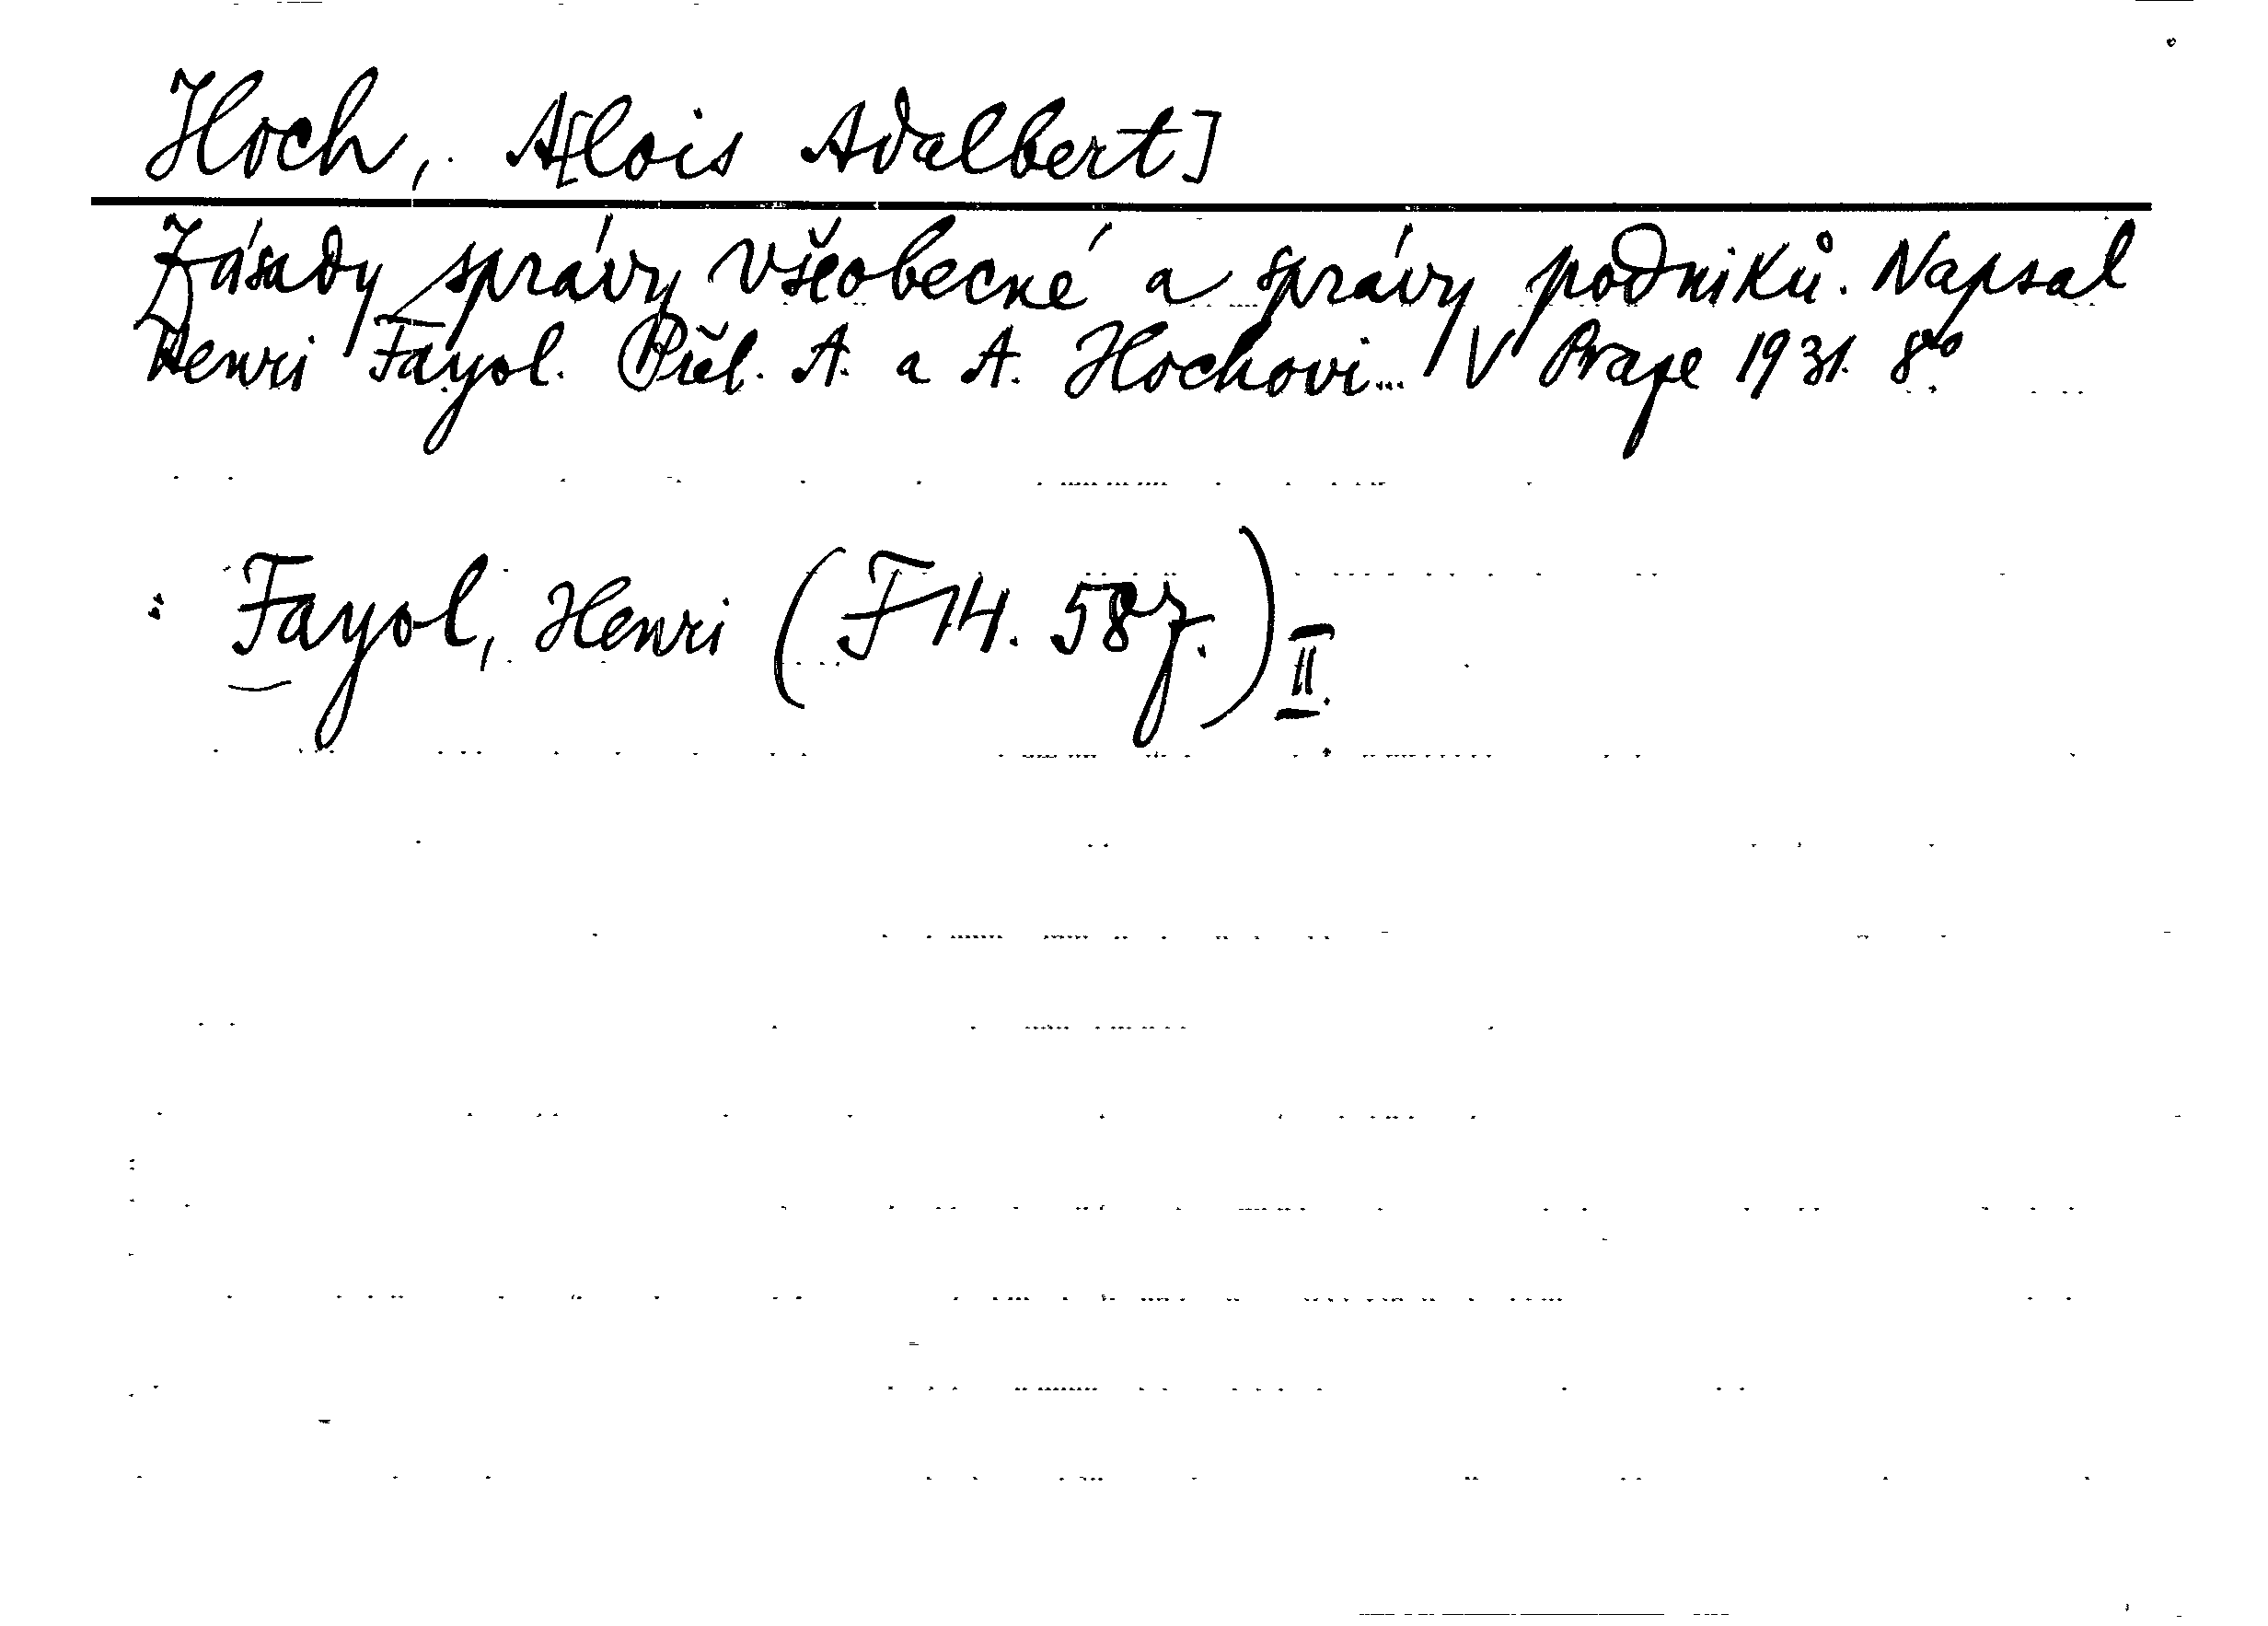 Hoch, A[lois Adalbert]
Zásady správy všeobecné a správy podniků. Napsal
Henri Fayol. Přel. A. a A. Hochovi... V Praze 1931. 8°
: Fayol, Henri (F 14. 587.) II.